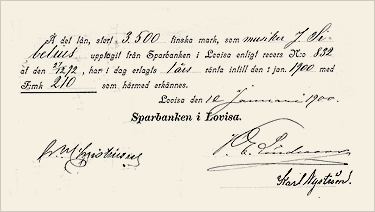 Å det lån, stort 3.500 finska mark, som musiker J. Si-
belius, upptagit från Sparbanken i Lovisa enligt revers N:o 832
af den 2/12 92, har i dag erlagts 1 års ränta intill den 1 jan. 1900 med
Fmk 210 som härmed erkännes.
Lovisa den 12 Januari 1900.
Sparbanken i Lovisa.
Karl Nyström.